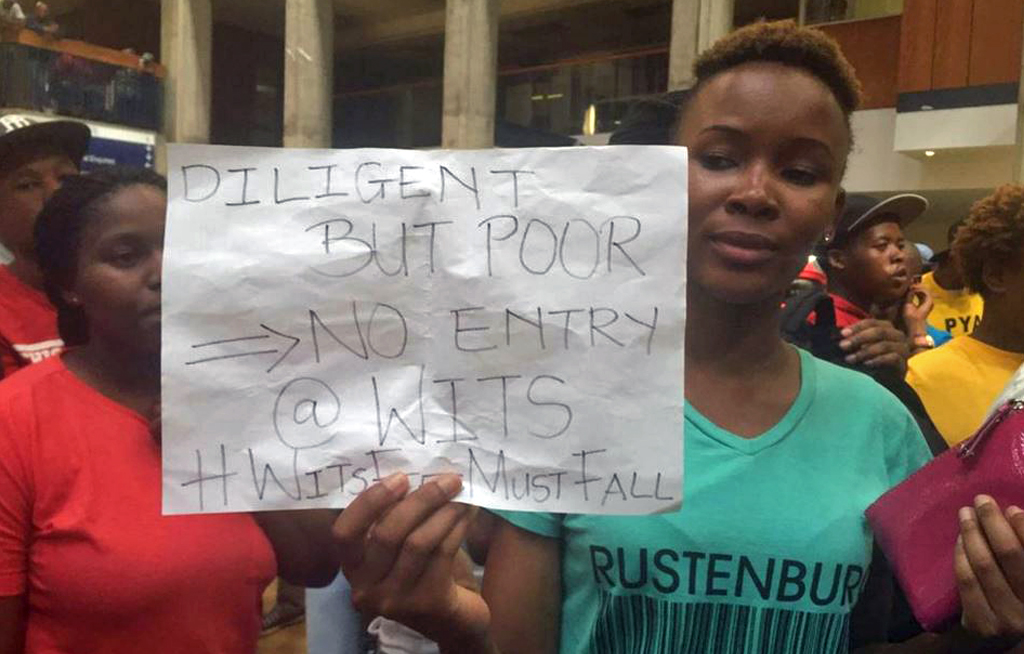 DILIGENT
BUT POOR
⇒ NO ENTRY
@ WITS
#WITSFEEMUSTFALL
RUSTENBURG
PYA